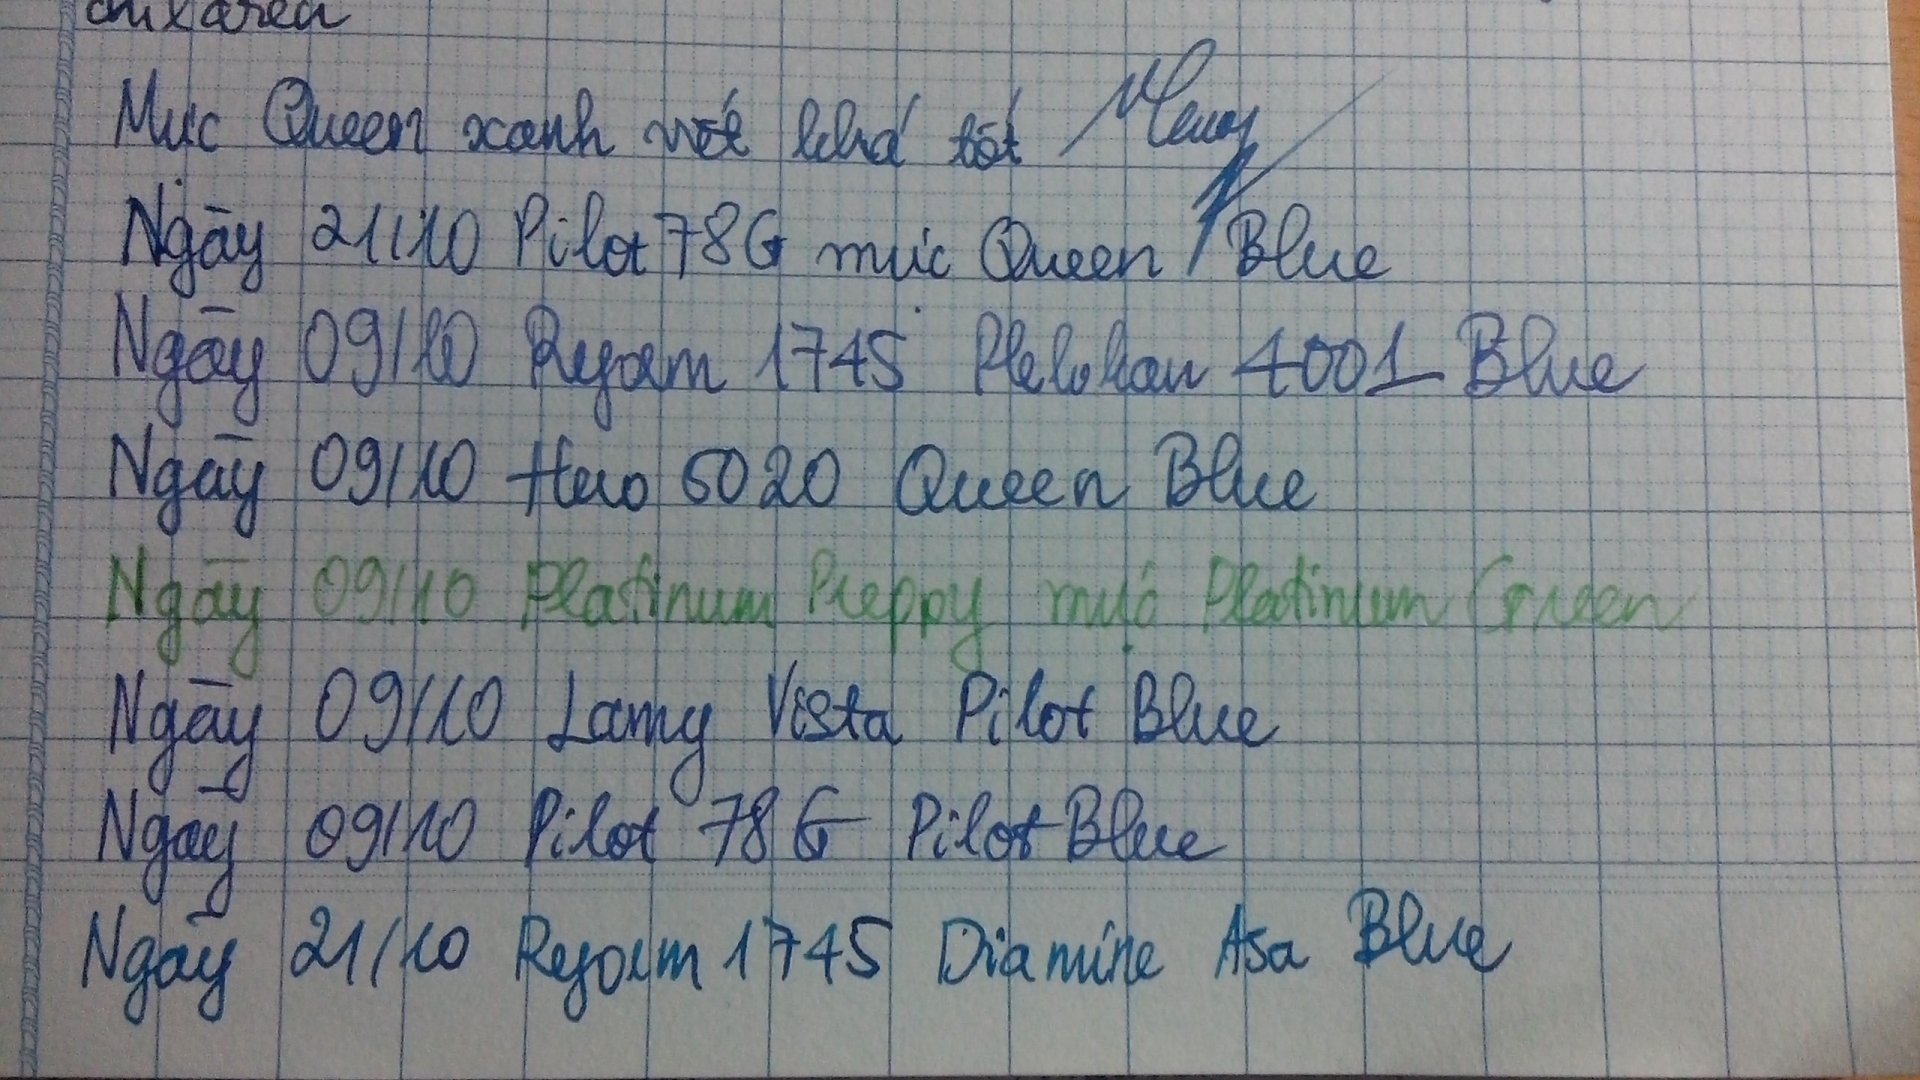 Mực Queen xanh viết khá tốt
Ngày 21/10 Pilot 78G mực Queen Blue
Ngày 09/10 Regam 1745 Pelokan 4001 Blue
Ngày 09/10 Hero 6020 Queen Blue
Ngày 09/10 Platinum Preppy mực Platinum Green
Ngày 09/10 Lamy Vista Pilot Blue
Ngày 09/10 Pilot 78G Pilot Blue
Ngày 21/10 Regam 1745 Diamine Asa Blue